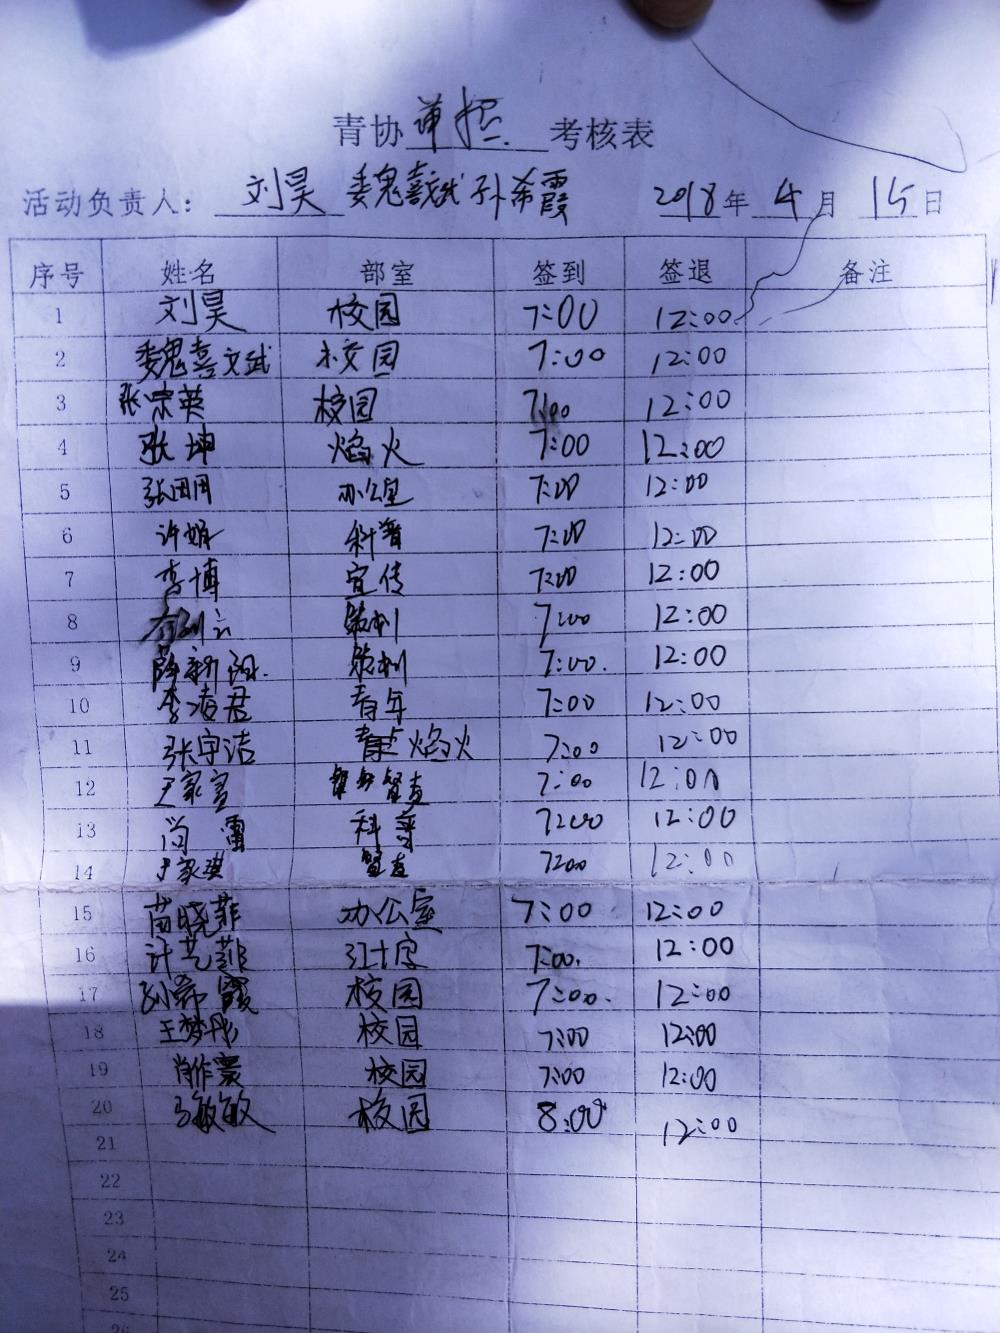 青协 考核表
活动负责人: 刘昊 魏喜斌 孙希霞 2018年4月15日
序号 姓名 部室 签到 签退 备注
1 刘昊 校园 7:00 12:00
2 魏喜文武 校园 7:00 12:00
3 张宗英 校园 7:00 12:00
4 张坤 焰火 7:00 12:00
5 张田田 办公室 7:00 12:00
6 许娟 科普 7:00 12:00
7 李博 宣传 7:00 12:00
8 策划 7:00 12:00
9 策划 7:00. 12:00
10 李凌君 青年 7:00 12:00
11 张宇洁 焰火 7:00 12:00
12 王家宣 督查 7:00 12:00
13 尚雷 科普 7:00 12:00
14 督查 7:00 12:00
15 苗晓菲 办公室 7:00 12:00
16 许艺菲 红十字 7:00. 12:00
17 孙希霞 校园 7:00. 12:00
18 王梦彤 校园 7:00 12:00
19 校园 7:00 12:00
20 马敏敏 校园 8:00 12:00
21
22
23
24
25
26